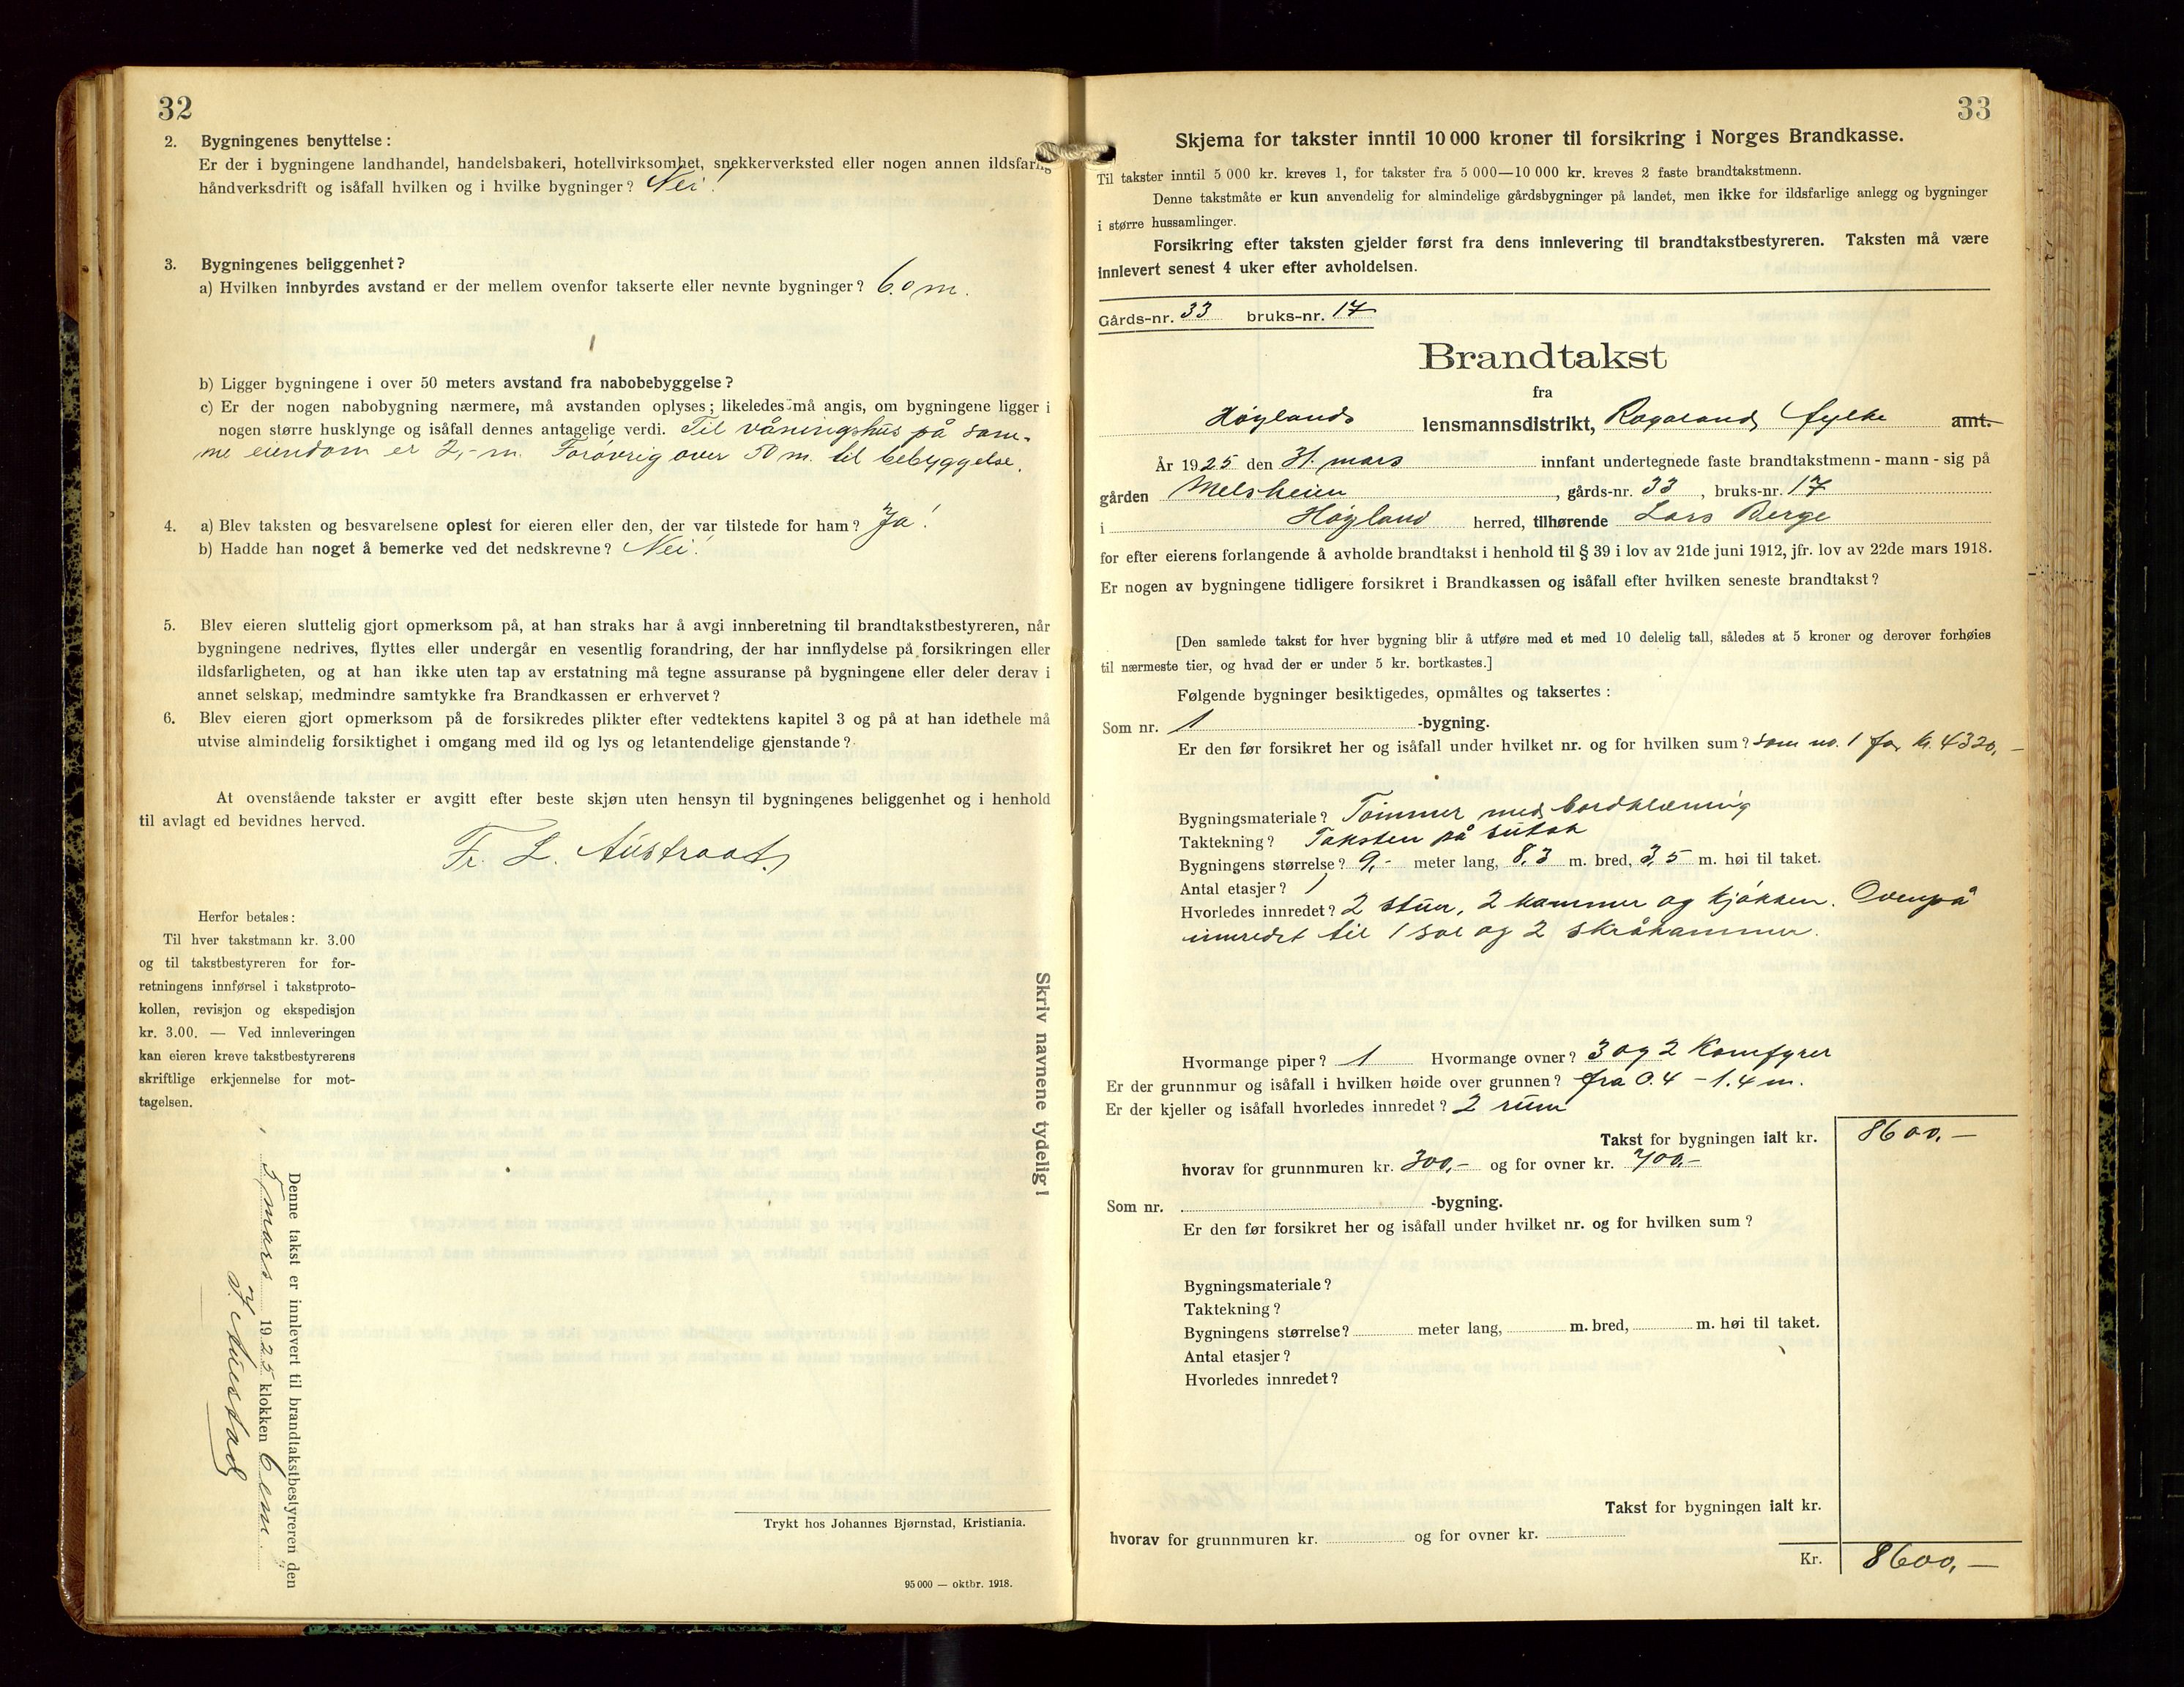 32
2. Bygningenes benyttelse:
Er der i bygningene landhandel, handelsbakeri, hotellvirksomhet, snekkerverksted eller nogen annen ildsfarlig
håndverksdrift og isåfall hvilken og i hvilke bygninger? Nei!
3. Bygningenes beliggenhet?
a) Hvilken innbyrdes avstand er der mellem ovenfor takserte eller nevnte bygninger? 6.0 m.
b) Ligger bygningene i over 50 meters avstand fra nabobebyggelse?
c) Er der nogen nabobygning nærmere, må avstanden oplyses; likeledes må angis, om bygningene ligger i
nogen større husklynge og isåfall dennes antagelige verdi. Til våningshus på sam-
me eiendom er 2,- m. Forøvrig over 50 m. til bebyggelse.
4. a) Blev taksten og besvarelsene oplest for eieren eller den, der var tilstede for ham? Ja!
b) Hadde han noget å bemerke ved det nedskrevne? Nei!
5. Blev eieren sluttelig gjort opmerksom på, at han straks har å avgi innberetning til brandtakstbestyreren, når
bygningene nedrives, flyttes eller undergår en vesentlig forandring, der har innflydelse på forsikringen eller
ildsfarligheten, og at han ikke uten tap av erstatning må tegne assuranse på bygningene eller deler derav i
annet selskap, medmindre samtykke fra Brandkassen er erhvervet?
6. Blev eieren gjort opmerksom på de forsikredes plikter efter vedtektens kapitel 3 og på at han idethele må
utvise almindelig forsiktighet i omgang med ild og lys og letantendelige gjenstande?
At ovenstående takster er avgitt efter beste skjøn uten hensyn til bygningenes beliggenhet og i henhold
til avlagt ed bevidnes herved.
Fr. L. Austraat
Herfor betales:
Til hver takstmann kr. 3.00
og til takstbestyreren for for-
retningens innførsel i takstproto-
kollen, revisjon og ekspedisjon
kr. 3.00. — Ved innleveringen
kan eieren kreve takstbestyrerens
skriftlige erkjennelse for mot-
tagelsen.
Skriv navnene tydelig!
Denne takst er innlevert til brandtakstbestyreren den
mars 1925 klokken 6 em.
Trykt hos Johannes Bjørnstad, Kristiania.
95 000 — oktbr. 1918.
33
Skjema for takster inntil 10 000 kroner til forsikring i Norges Brandkasse.
Til takster inntil 5 000 kr. kreves 1, for takster fra 5 000—10 000 kr. kreves 2 faste brandtakstmenn.
Denne takstmåte er kun anvendelig for almindelige gårdsbygninger på landet, men ikke for ildsfarlige anlegg og bygninger
i større hussamlinger.
Forsikring efter taksten gjelder først fra dens innlevering til brandtakstbestyreren. Taksten må være
innlevert senest 4 uker efter avholdelsen.
Gårds-nr. 33 bruks-nr. 17
Brandtakst
fra
Høylands lensmannsdistrikt, Rogaland fylke amt.
År 1925 den 31. mars innfant undertegnede faste brandtakstmenn - mann - sig på
gården Melsheien, gårds-nr. 33, bruks-nr. 17
i Høyland herred, tilhørende Lars Berge
for efter eierens forlangende å avholde brandtakst i henhold til § 39 i lov av 21de juni 1912, jfr. lov av 22de mars 1918.
Er nogen av bygningene tidligere forsikret i Brandkassen og isåfall efter hvilken seneste brandtakst?
[Den samlede takst for hver bygning blir å utføre med et med 10 delelig tall, således at 5 kroner og derover forhøies
til nærmeste tier, og hvad der er under 5 kr. bortkastes.]
Følgende bygninger besiktigedes, opmåltes og taksertes:
Som nr. 1 -bygning.
Er den før forsikret her og isåfall under hvilket nr. og for hvilken sum? Som no. 1 for kr. 4320,-
Bygningsmateriale? Tømmer med bordklædning
Taktekning? Taksten på sutak
Bygningens størrelse? 9,- meter lang, 8,3 m. bred, 3,5 m. høi til taket.
Antal etasjer? 1
Hvorledes innredet? 2 stuer, 2 kammer og kjøkken. Ovenpå
innredet til 1 sal og 2 skråkammer.
Hvormange piper? 1 Hvormange ovner? 3 og 2 Komfyrer
Er der grunnmur og isåfall i hvilken høide over grunnen? fra 0.4 - 1.4 m.
Er der kjeller og isåfall hvorledes innredet? 2 rum
Takst for bygningen ialt kr. 8600,-
hvorav for grunnmuren kr. 300,- og for ovner kr. 700,-
Som nr. -bygning.
Er den før forsikret her og isåfall under hvilket nr. og for hvilken sum?
Bygningsmateriale?
Taktekning?
Bygningens størrelse? meter lang, m. bred, m. høi til taket.
Antal etasjer?
Hvorledes innredet?
Takst for bygningen ialt kr.
hvorav for grunnmuren kr. og for ovner kr.
Kr. 8600,-